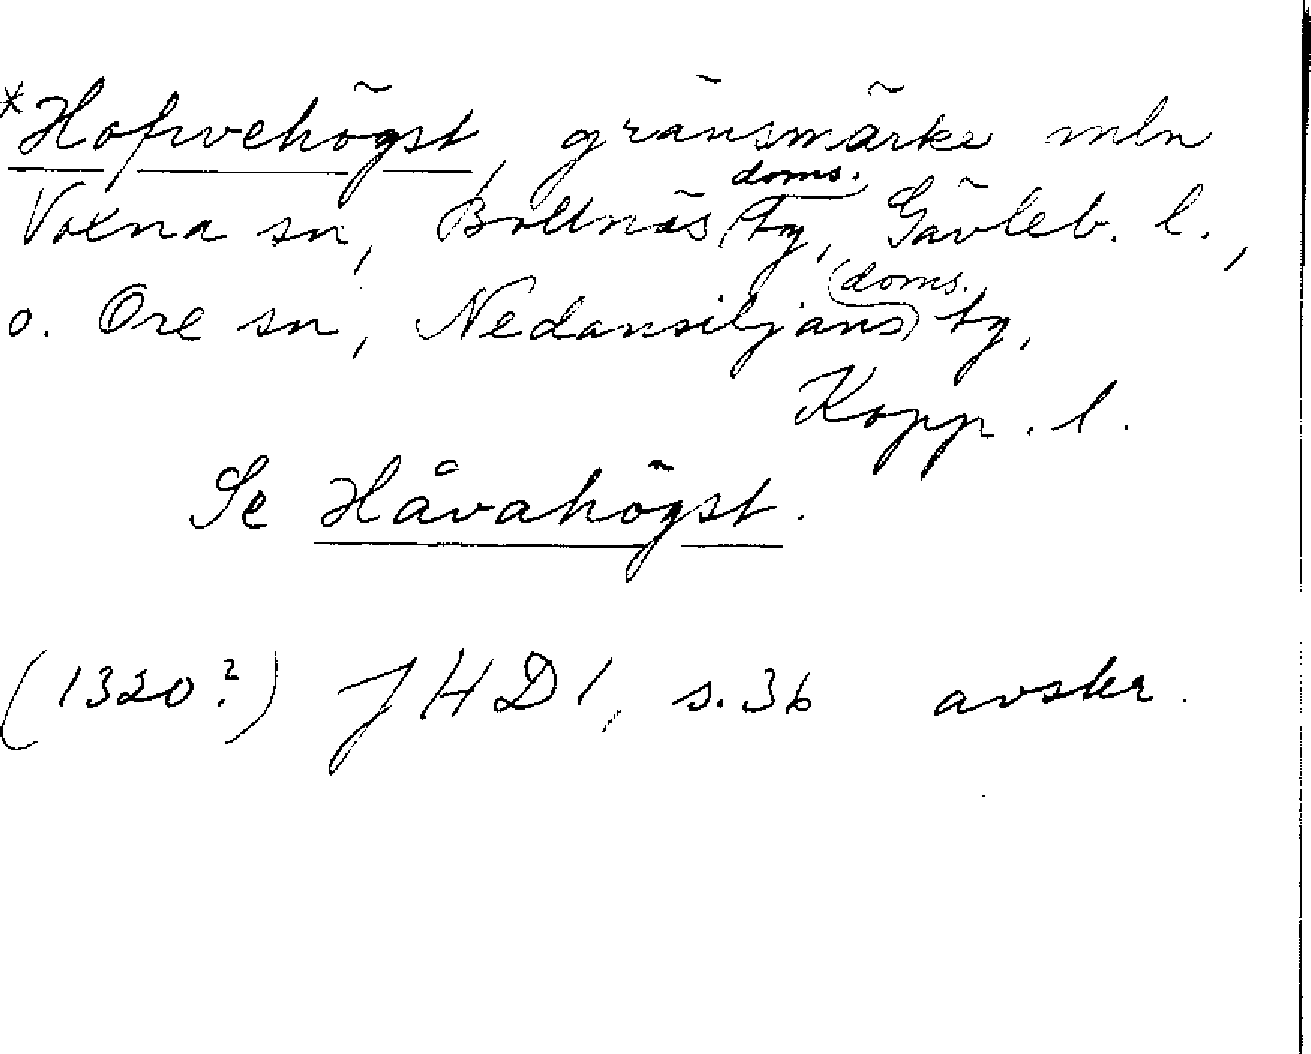 *Hofwehögst, gränsmärke mln
Voxna sn, Bollnäs doms. tg, Gävleb. l.,
o. Ore sn, Nedansiljans doms. tg,
Kopp. l.
Se Håvahögst.
(1320?) JHD 1, s. 36 avskr.